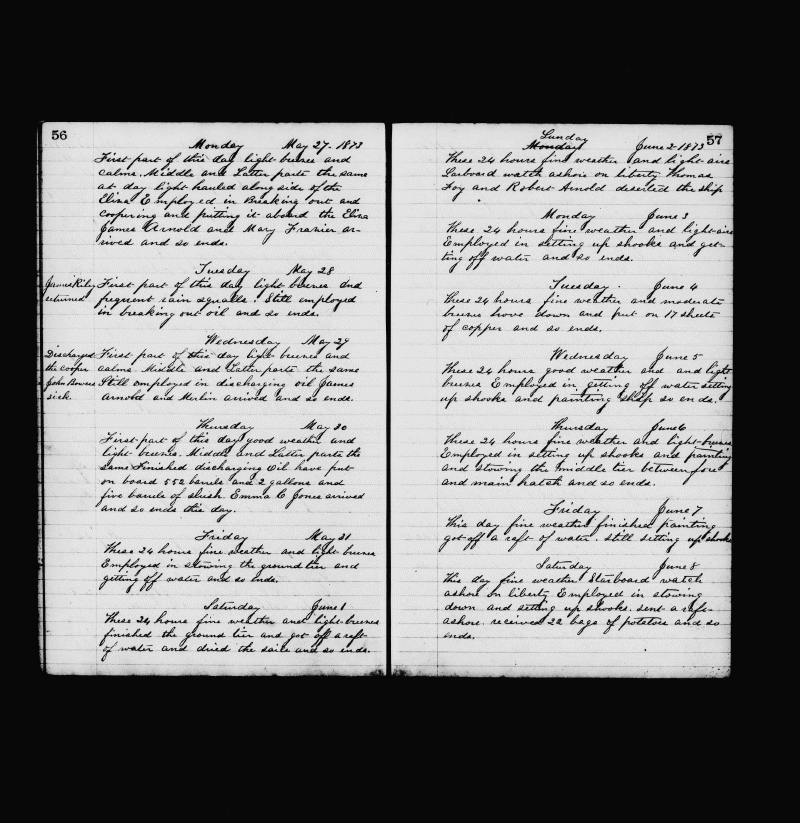 56
Monday May 27. 1873
First part of this day light breeses and
calms. Middle and Latter parts the same
at day light hauled along side of the
Eliza Employed in Breaking out and
coopering and putting it aboard the Eliza
James Arnold and Mary Frazier ar-
rived and so ends.
Tuesday May 28
James Riley
returned
First part of this day light breeses and
frequent rain squalls. Still employed
in breaking out oil and so ends.
Wednesday May 29
Discharged
the cooper
John Bowen
sick.
First part of this day light breeses and
calms. Middle and Latter parts the same
Still employed in discharging oil James
Arnold and Merlin arrived and so ends.
Thursday May 30
First part of this day good weather and
light breeses. Middle and Latter parts the
same Finished discharging Oil have put
on board 552 barels and 2 gallons and
five barels of slush. Emma C Jones arrived
and so ends this day.
Friday May 31
These 24 hours fine weather and light breeses
Employed in stowing the ground tier and
getting off water and so ends.
Saturday June 1
These 24 hours fine weather and light breeses
finished the ground tier and got off a raft
of water and dried the sails and so ends.
57
Sunday
Monday June 2 1873
These 24 hours fine weather and light airs
Larboard watch ashore on liberty Thomas
Foy and Robert Arnold deserted the ship
Monday June 3
These 24 hours fine weather and light airs
Employed in setting up shooks and get-
ting off water and so ends.
Tuesday. June 4
These 24 hours fine weather and moderate
breeses hove down and put on 17 sheets
of copper and so ends.
Wednesday June 5
These 24 hours good weather and and light
breeses Employed in getting off water setting
up shooks and painting ship so ends.
Thursday June 6
These 24 hours fine weather and light breeses
Employed in setting up shooks and painting
and stowing the middle tier between fore
and main hatch and so ends.
Friday June 7
This day fine weather finished painting
got off a raft of water. still setting up shooks
Saturday June 8
This day fine weather Starboard watch
ashore on liberty Employed in stowing
down and setting up shooks. sent a raft
ashore. received 22 bags of potatoes and so
ends.